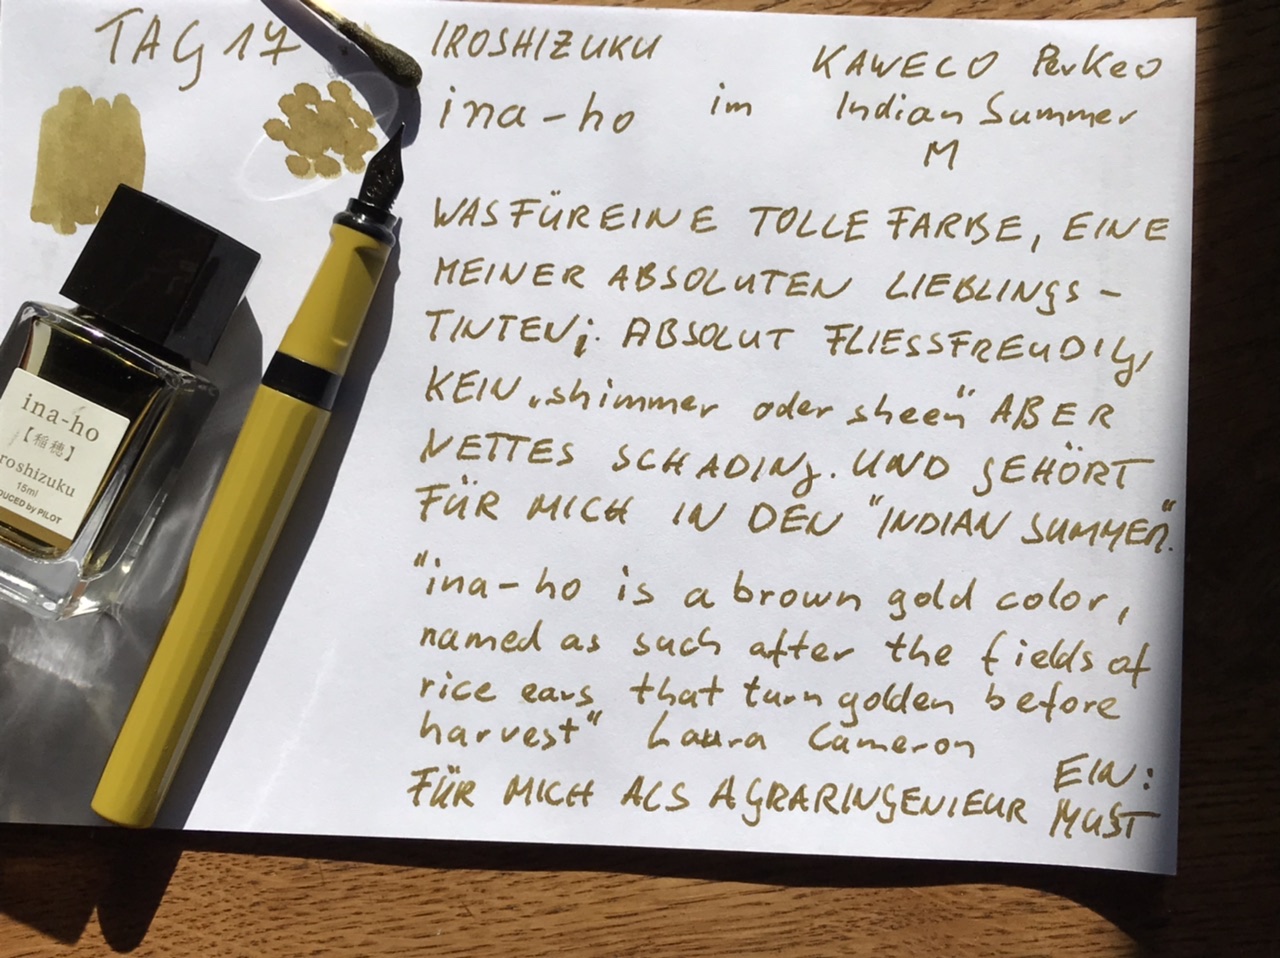 TAG 17
IROSHIZUKU
ina-ho
im
KAWECO PerKeo
Indian Summer
M
WAS FÜR EINE TOLLE FARBE, EINE
MEINER ABSOLUTEN LIEBLINGS-
TINTEN¡. ABSOLUT FLIESSFREUDIG,
KEIN „shimmer oder sheen“ ABER
NETTES SCHADING. UND GEHÖRT
FÜR MICH IN DEN "INDIAN SUMMER".
"ina-ho is a brown gold color,
named as such after the fields of
rice ears that turn golden before
harvest" Laura Cameron
FÜR MICH ALS AGRARINGENIEUR EIN:
MUST
ina-ho
【稲穂】
roshizuku
15ml
DUCED by PILOT